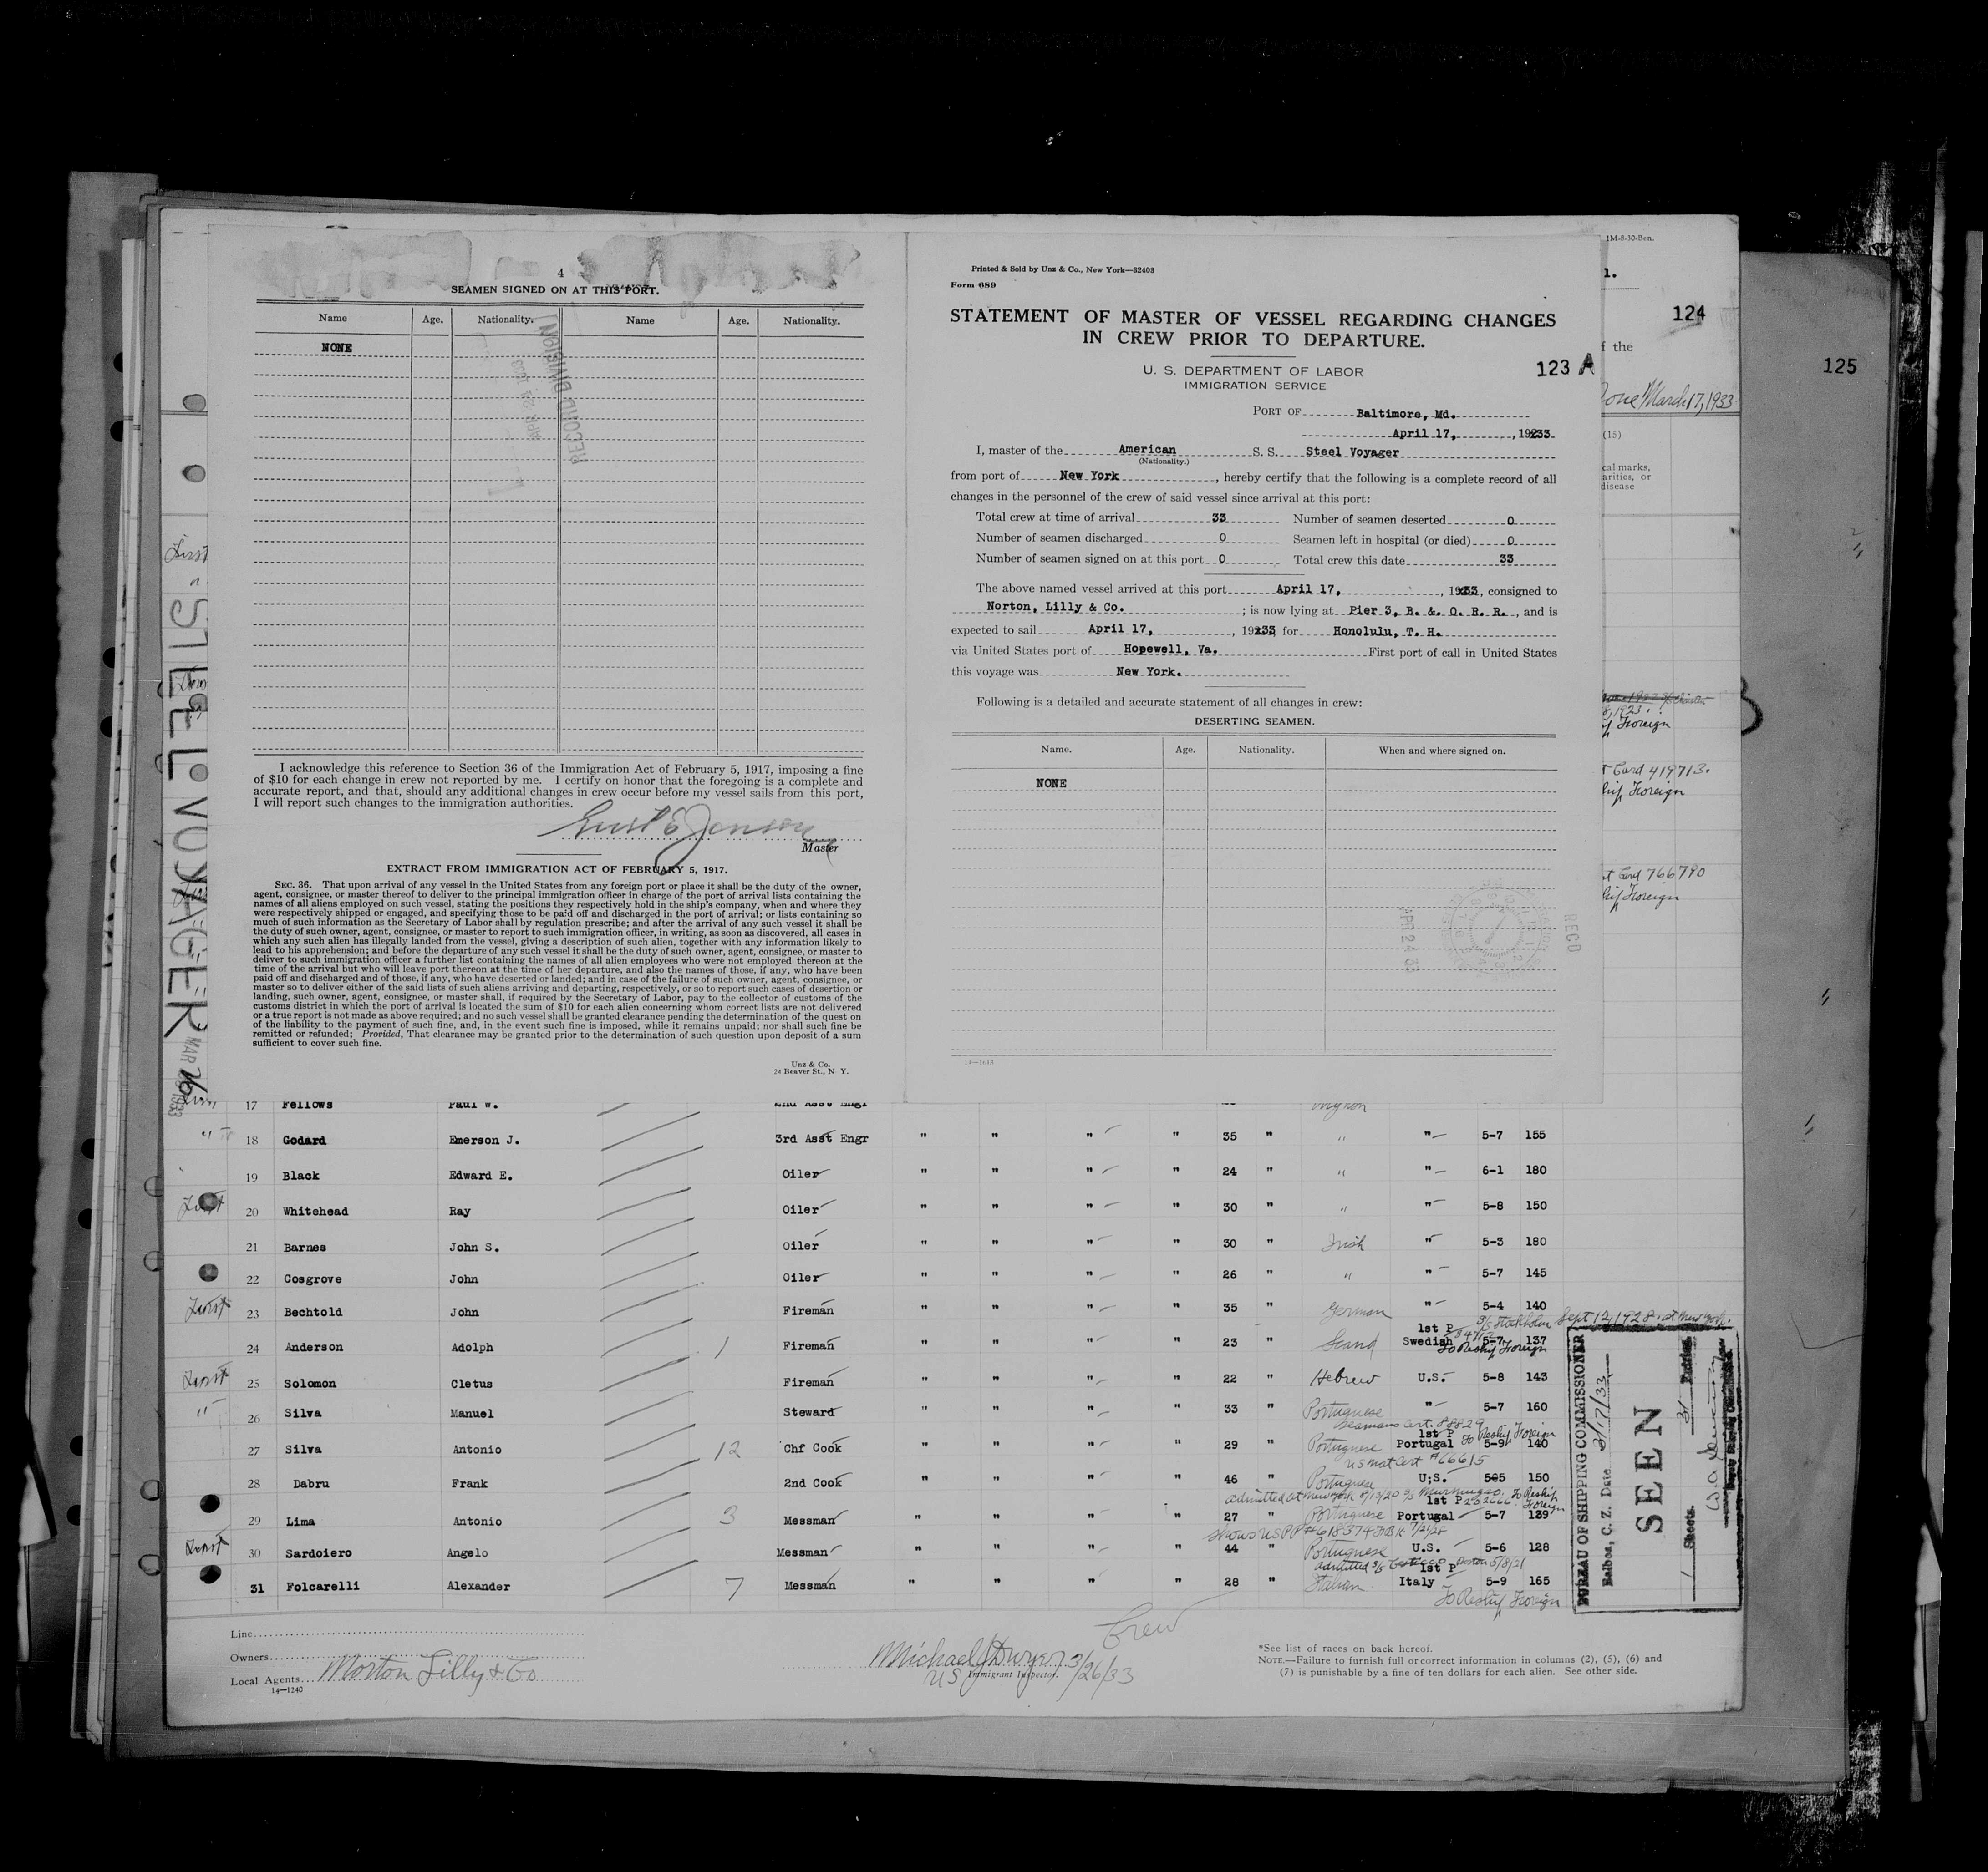 4
SEAMEN SIGNED ON AT THIS PORT.
Name Age. Nationality. Name Age. Nationality.
NONE
RECORD DIVISION
APR 24 1933
I acknowledge this reference to Section 36 of the Immigration Act of February 5, 1917, imposing a fine
of $10 for each change in crew not reported by me. I certify on honor that the foregoing is a complete and
accurate report, and that, should any additional changes in crew occur before my vessel sails from this port,
I will report such changes to the immigration authorities.
Master
EXTRACT FROM IMMIGRATION ACT OF FEBRUARY 5, 1917.
SEC. 36. That upon arrival of any vessel in the United States from any foreign port or place it shall be the duty of the owner,
agent, consignee, or master thereof to deliver to the principal immigration officer in charge of the port of arrival lists containing the
names of all aliens employed on such vessel, stating the positions they respectively hold in the ship's company, when and where they
were respectively shipped or engaged, and specifying those to be paid off and discharged in the port of arrival; or lists containing so
much of such information as the Secretary of Labor shall by regulation prescribe; and after the arrival of any such vessel it shall be
the duty of such owner, agent, consignee, or master to report to such immigration officer, in writing, as soon as discovered, all cases in
which any such alien has illegally landed from the vessel, giving a description of such alien, together with any information likely to
lead to his apprehension; and before the departure of any such vessel it shall be the duty of such owner, agent, consignee, or master to
deliver to such immigration officer a further list containing the names of all alien employees who were not employed thereon at the
time of the arrival but who will leave port thereon at the time of her departure, and also the names of those, if any, who have been
paid off and discharged and of those, if any, who have deserted or landed; and in case of the failure of such owner, agent, consignee, or
master so to deliver either of the said lists of such aliens arriving and departing, respectively, or so to report such cases of desertion or
landing, such owner, agent, consignee, or master shall, if required by the Secretary of Labor, pay to the collector of customs of the
customs district in which the port of arrival is located the sum of $10 for each alien concerning whom correct lists are not delivered
or a true report is not made as above required; and no such vessel shall be granted clearance pending the determination of the quest on
of the liability to the payment of such fine, and, in the event such fine is imposed, while it remains unpaid; nor shall such fine be
remitted or refunded; Provided, That clearance may be granted prior to the determination of such question upon deposit of a sum
sufficient to cover such fine.
Unz & Co.
24 Beaver St., N Y.
Printed & Sold by Unz & Co., New York—32403
Form 689
STATEMENT OF MASTER OF VESSEL REGARDING CHANGES
IN CREW PRIOR TO DEPARTURE.
U. S. DEPARTMENT OF LABOR
IMMIGRATION SERVICE
123 A
PORT OF Baltimore, Md.
April 17, , 1933
I, master of the American S. S. Steel Voyager
(Nationality.)
from port of New York , hereby certify that the following is a complete record of all
changes in the personnel of the crew of said vessel since arrival at this port:
Total crew at time of arrival 33 Number of seamen deserted 0
Number of seamen discharged 0 Seamen left in hospital (or died) 0
Number of seamen signed on at this port 0 Total crew this date 33
The above named vessel arrived at this port April 17, , 1933, consigned to
Norton, Lilly & Co. ; is now lying at Pier 3, B. & O. R. R. , and is
expected to sail April 17, , 1933 for Honolulu, T. H.
via United States port of Hopewell, Va. First port of call in United States
this voyage was New York.
Following is a detailed and accurate statement of all changes in crew:
DESERTING SEAMEN.
Name. Age. Nationality. When and where signed on.
NONE
APR 24 33
RECD
14—1613
1M-8-30-Ben.
1.
124
f the
March 17, 1933
(15)
cal marks,
arities, or
disease
Foreign
Card 419713.
Foreign
766790
Foreign
125
STEEL VOYAGER
MAR 26 1933
17 Fellows Paul W. 2nd Asst Engr
" 18 Godard Emerson J. 3rd Asst Engr " " " " 35 " " " 5-7 155
19 Black Edward E. Oiler " " " " 24 " " " 6-1 180
First 20 Whitehead Ray Oiler " " " " 30 " " " 5-8 150
21 Barnes John S. Oiler " " " " 30 " Irish " 5-3 180
22 Cosgrove John Oiler " " " " 26 " " " 5-7 145
First 23 Bechtold John Fireman " " " " 35 " German " 5-4 140
1st P S/S Stockholm Sept 12, 1928. at New York.
24 Anderson Adolph 1 Fireman " " " " 23 " Scand Swedish 5-7 137
To Reship Foreign
First 25 Solomon Cletus Fireman " " " " 22 " Hebrew U.S. 5-8 143
" 26 Silva Manuel Steward " " " " 33 " Portuguese " 5-7 160
Seamans Cert. 88829
1st P To Reship Foreign
27 Silva Antonio 12 Chf Cook " " " " 29 " Portuguese Portugal 5-9 140
US Nat Cert #66615
28 Dabru Frank 2nd Cook " " " " 46 " Portuguese U.S. 505 150
1st P To Reship Foreign
29 Lima Antonio 3 Messman " " " " 27 " Portuguese Portugal 5-7 129
Shows US PP #618374
First 30 Sardoiero Angelo Messman " " " " 44 " Portuguese U.S. 5-6 128
admitted Boston 5/8/21
1st P
31 Folcarelli Alexander 7 Messman " " " " 28 " Italian Italy 5-9 165
To Reship Foreign
BUREAU OF SHIPPING COMMISSIONER
Balboa, C. Z. Date 3/17/33
SEEN
1 Sheets. 31 Entries
Crew
Line
Owners
Local Agents Norton Lilly & Co
14—1240
Michael J Dwyer 3/26/33
US Immigrant Inspector.
*See list of races on back hereof.
NOTE.—Failure to furnish full or correct information in columns (2), (5), (6) and
(7) is punishable by a fine of ten dollars for each alien. See other side.